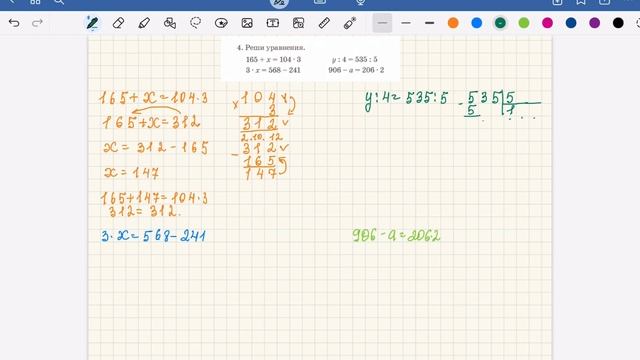 4. Реши уравнения.
165 + x = 104 · 3
y : 4 = 535 : 5
3 · x = 568 – 241
906 – a = 206 · 2
165 + x = 104 · 3
165 + x = 312
x = 312 – 165
x = 147
165 + 147 = 104 · 3
312 = 312.
3 · x = 568 – 241
104
× 3
312
2. 10. 12
312
– 165
147
y : 4 = 535 : 5
– 535 | 5
5 1 . .
906 – a = 2062